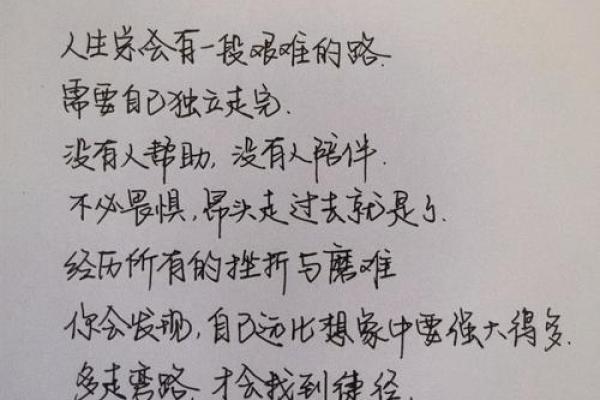 人生总会有一段艰难的路.
需要自己独立走完.
没有人帮助,没有人陪伴.
不必畏惧,昂头走过去就是了.
经历所有的挫折与磨难
你会发现,自己远比想象中要强大得多.
多走弯路,才会找到捷径.